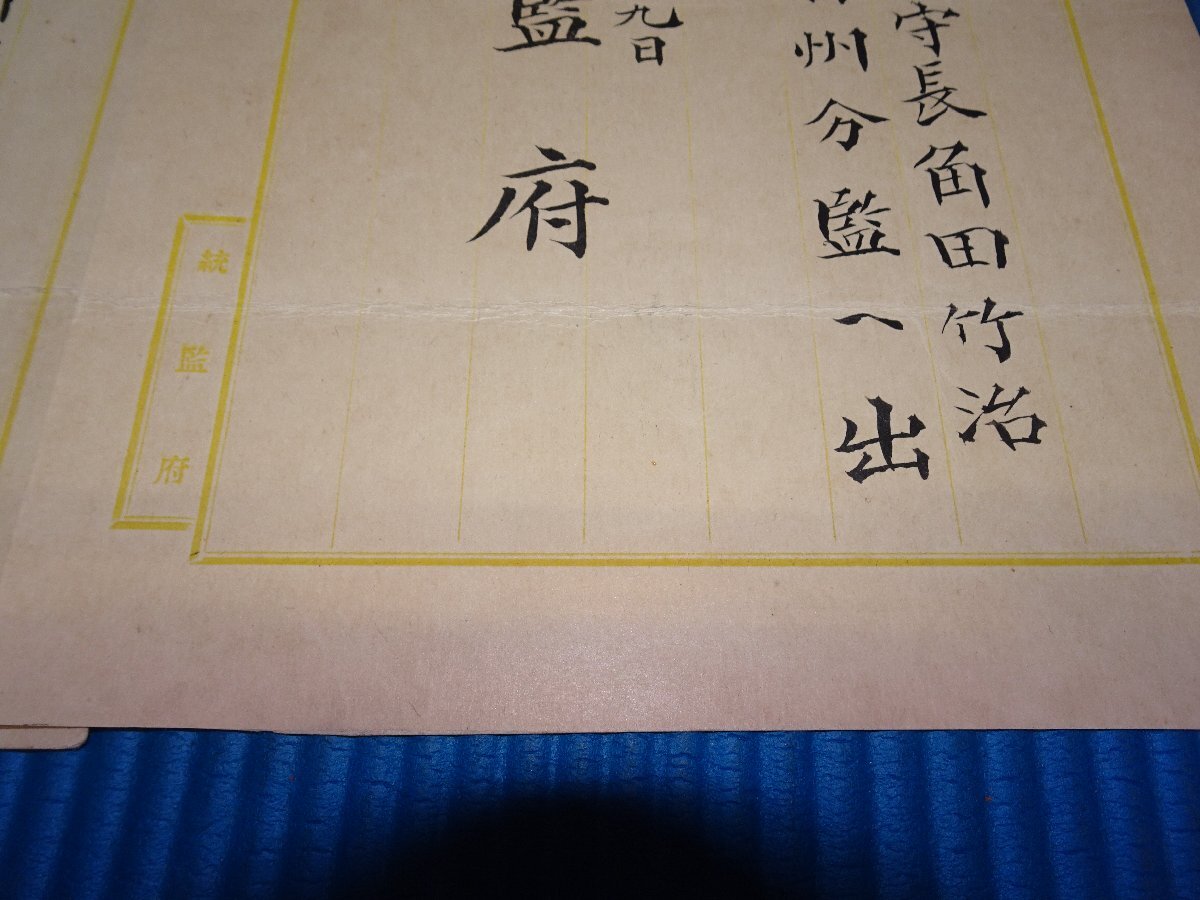 守長角田竹治
州分監ヘ出
九日
監府
統監府